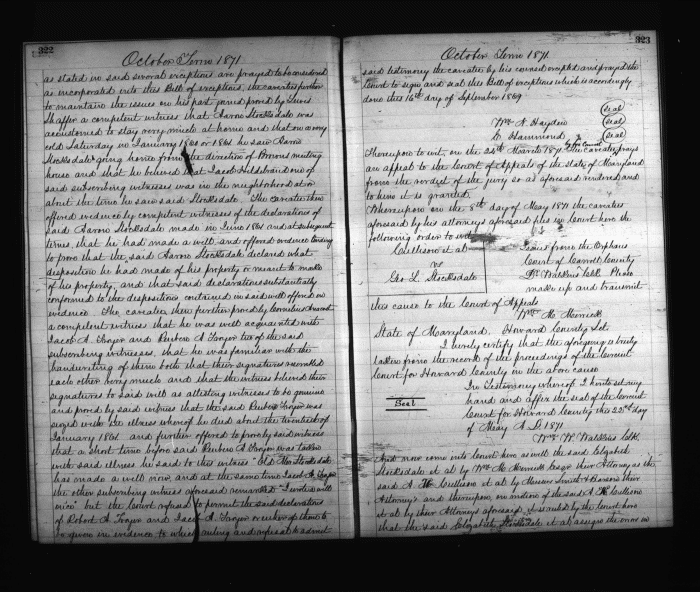 322
October Term 1871
as stated in said several exceptions are prayed to be considered
as incorporated into this Bill of exceptions, the caveatees further
to maintain the issues on his part joined proved by Lewis
Shaffer a competent witness that Aaron Stocksdale was
accustomed to stay very much at home and that on a very
cold Saturday in January 1860 or 1861 he saw Aaron
Stocksdale going home from the direction of Browns meeting
house and that he believed that Jacob Hildebrand one of
said subscribing witnesses was in the neighborhood at or
about the time he saw said Stocksdale. The caveatee then
offered evidence by competent witnesses of the declarations of
said Aaron Stocksdale made in June 1861 and at subsequent
times, that he had made a will and offered evidence tending
to prove that the said Aaron Stocksdale declared what
disposition he had made of his property or meant to make
of his property, and that said declarations substantially
conformed to the dispositions contained in said will offered in
evidence. The caveatee then further proved by Cornelius
a competent witness that he was well acquainted with
Jacob A. Frozer and Reuben A Frozer two of the said
subscribing witnesses, that he was familiar with the
handwriting of them both that their signatures resembled
each other very much and that the witness believed their
signatures to said will as attesting witnesses to be genuine
and proved by said witness that the said Reuben Frozer was
seized with the illness whereof he died about the twentieth of
January 1861 and further offered to prove by said witness
that a short time before said Reuben A Frozer was taken
with said illness he said to this witness "Old Mr Stocksdale
has made a will now, and at the same time Jacob A. Frozer
the other subscribing witness aforesaid remarked "I writed will
mice" but the Court refused to permit the said declarations
of Robert A Frozer and Jacob A. Frozer or either of them to
be given in evidence to which ruling and refusal to admit
323
October Term 1871
said testimony the caveatee by his counsel excepted and prayed the
Court to sign and seal this Bill of exceptions which is accordingly
done this 16th day of September 1869
Wm N. Hayden (Seal)
E. Hammond (Seal)
(Seal)
by his Counsel
Thereupon to wit, on the 24th March 1871 The caveatee prays
an appeal to the Court of Appeals of the state of Maryland
from the verdict of the jury so as aforesaid rendered and
to him it is granted.
Whereupon on the 8th day of May 1871 the caveatee
aforesaid by his attorneys aforesaid files in Court here the
following order to wit
Cullison et al
vs
Geo L. Stocksdale
Issues from the Orphans
Court of Carroll County
Dr Watkins Clk Please
make up and transmit
this cause to the Court of Appeals
Wm M. Merrick
State of Maryland. Howard County Sct.
I hereby certify that the aforegoing is truly
taken from the record of the proceedings of the Circuit
Court for Howard County in the above cause
Seal
In Testimony whereof I hereto set my
hand and affix the seal of the Circuit
Court for Howard County this 22nd day
of May A.D. 1871
Wm W. Watkins Clk.
And now come into Court here as well the said Elizabeth
Stocksdale et al by Wm M. Merrick Esqr their Attorney as the
said A. H. Cullison et al by Messrs Smith & their
Attorneys and thereupon, on motion of the said A. H. Cullison
et al by their Attorneys aforesaid, it is ruled by the Court here
that the said Elizabeth Stocksdale et al assigns the error in